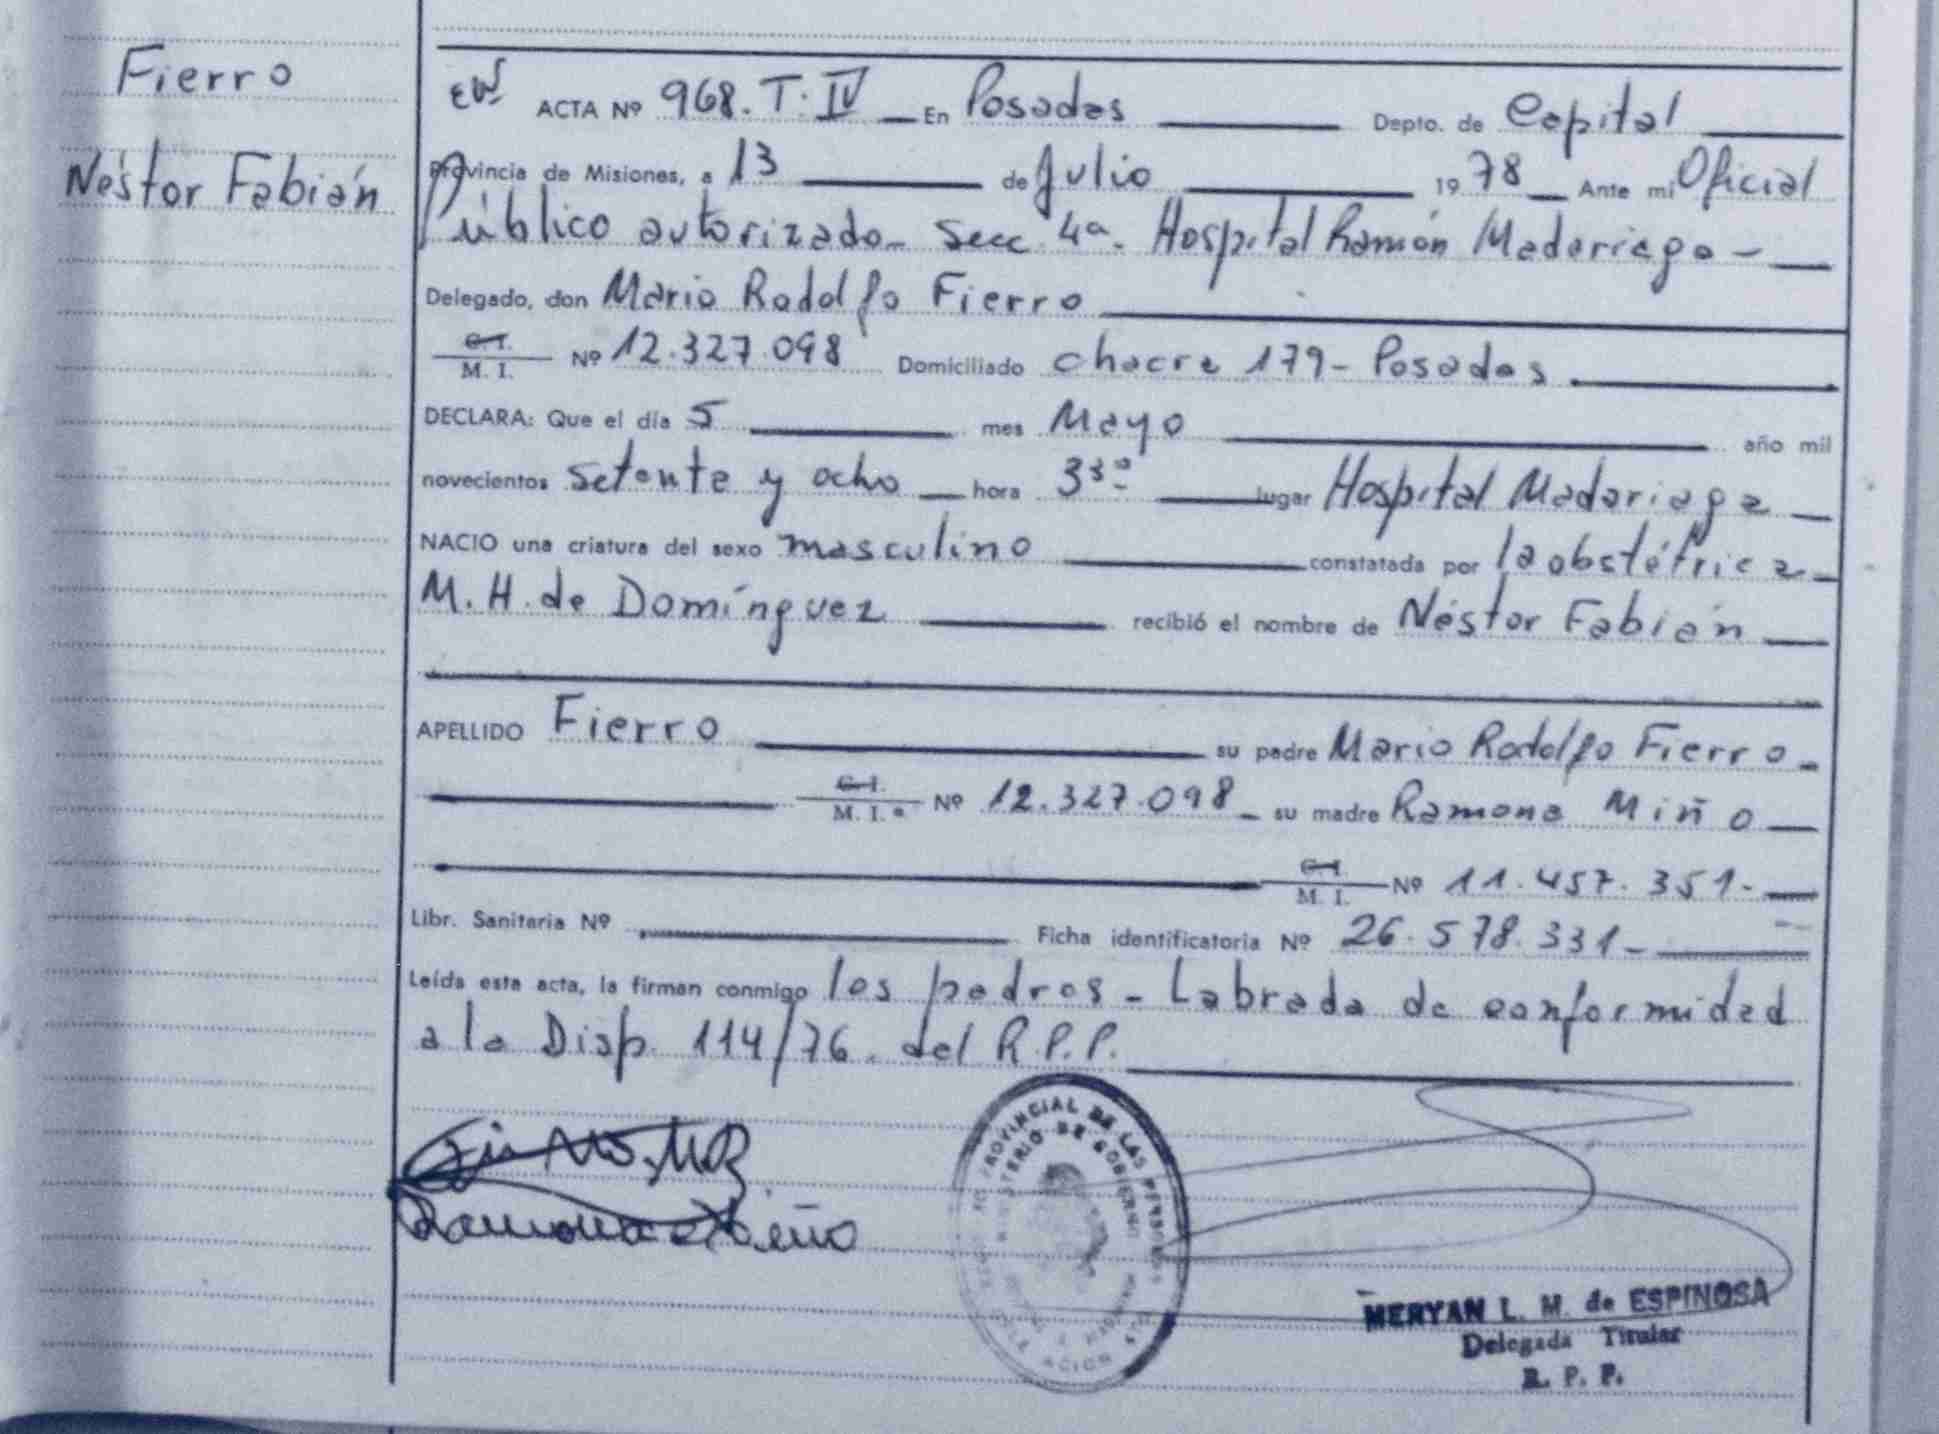 Fierro
Néstor Fabián
ACTA Nº 968. T. IV En Posadas Depto. de Capital
Provincia de Misiones, a 13 de Julio 1978 Ante mi Oficial
Público autorizado - Secc 4ª. Hospital Ramón Madariaga -
Delegado, don Mario Rodolfo Fierro
C. I.
M. I. Nº 12.327.098 Domiciliado chacra 179 - Posadas
DECLARA: Que el día 5 mes Mayo año mil
novecientos setenta y ocho hora 3³⁰ lugar Hospital Madariaga
NACIO una criatura del sexo masculino constatada por la obstétrica
M. H. de Domínguez recibió el nombre de Néstor Fabián
APELLIDO Fierro su padre Mario Rodolfo Fierro -
C. I.
M. I. Nº 12.327.098 su madre Ramona Miño
C. I.
M. I. Nº 11.457.351 -
Libr. Sanitaria Nº Ficha identificatoria Nº 26.578.331 -
Leída esta acta, la firman conmigo los padres - Labrada de conformidad
a la Disp. 114/76. del R.P.P.
Ramona Miño
PROVINCIAL DE LAS PERSONAS
MINISTERIO DE GOBIERNO
MERYAN L. M. de ESPINOSA
Delegada Titular
R. P. P.